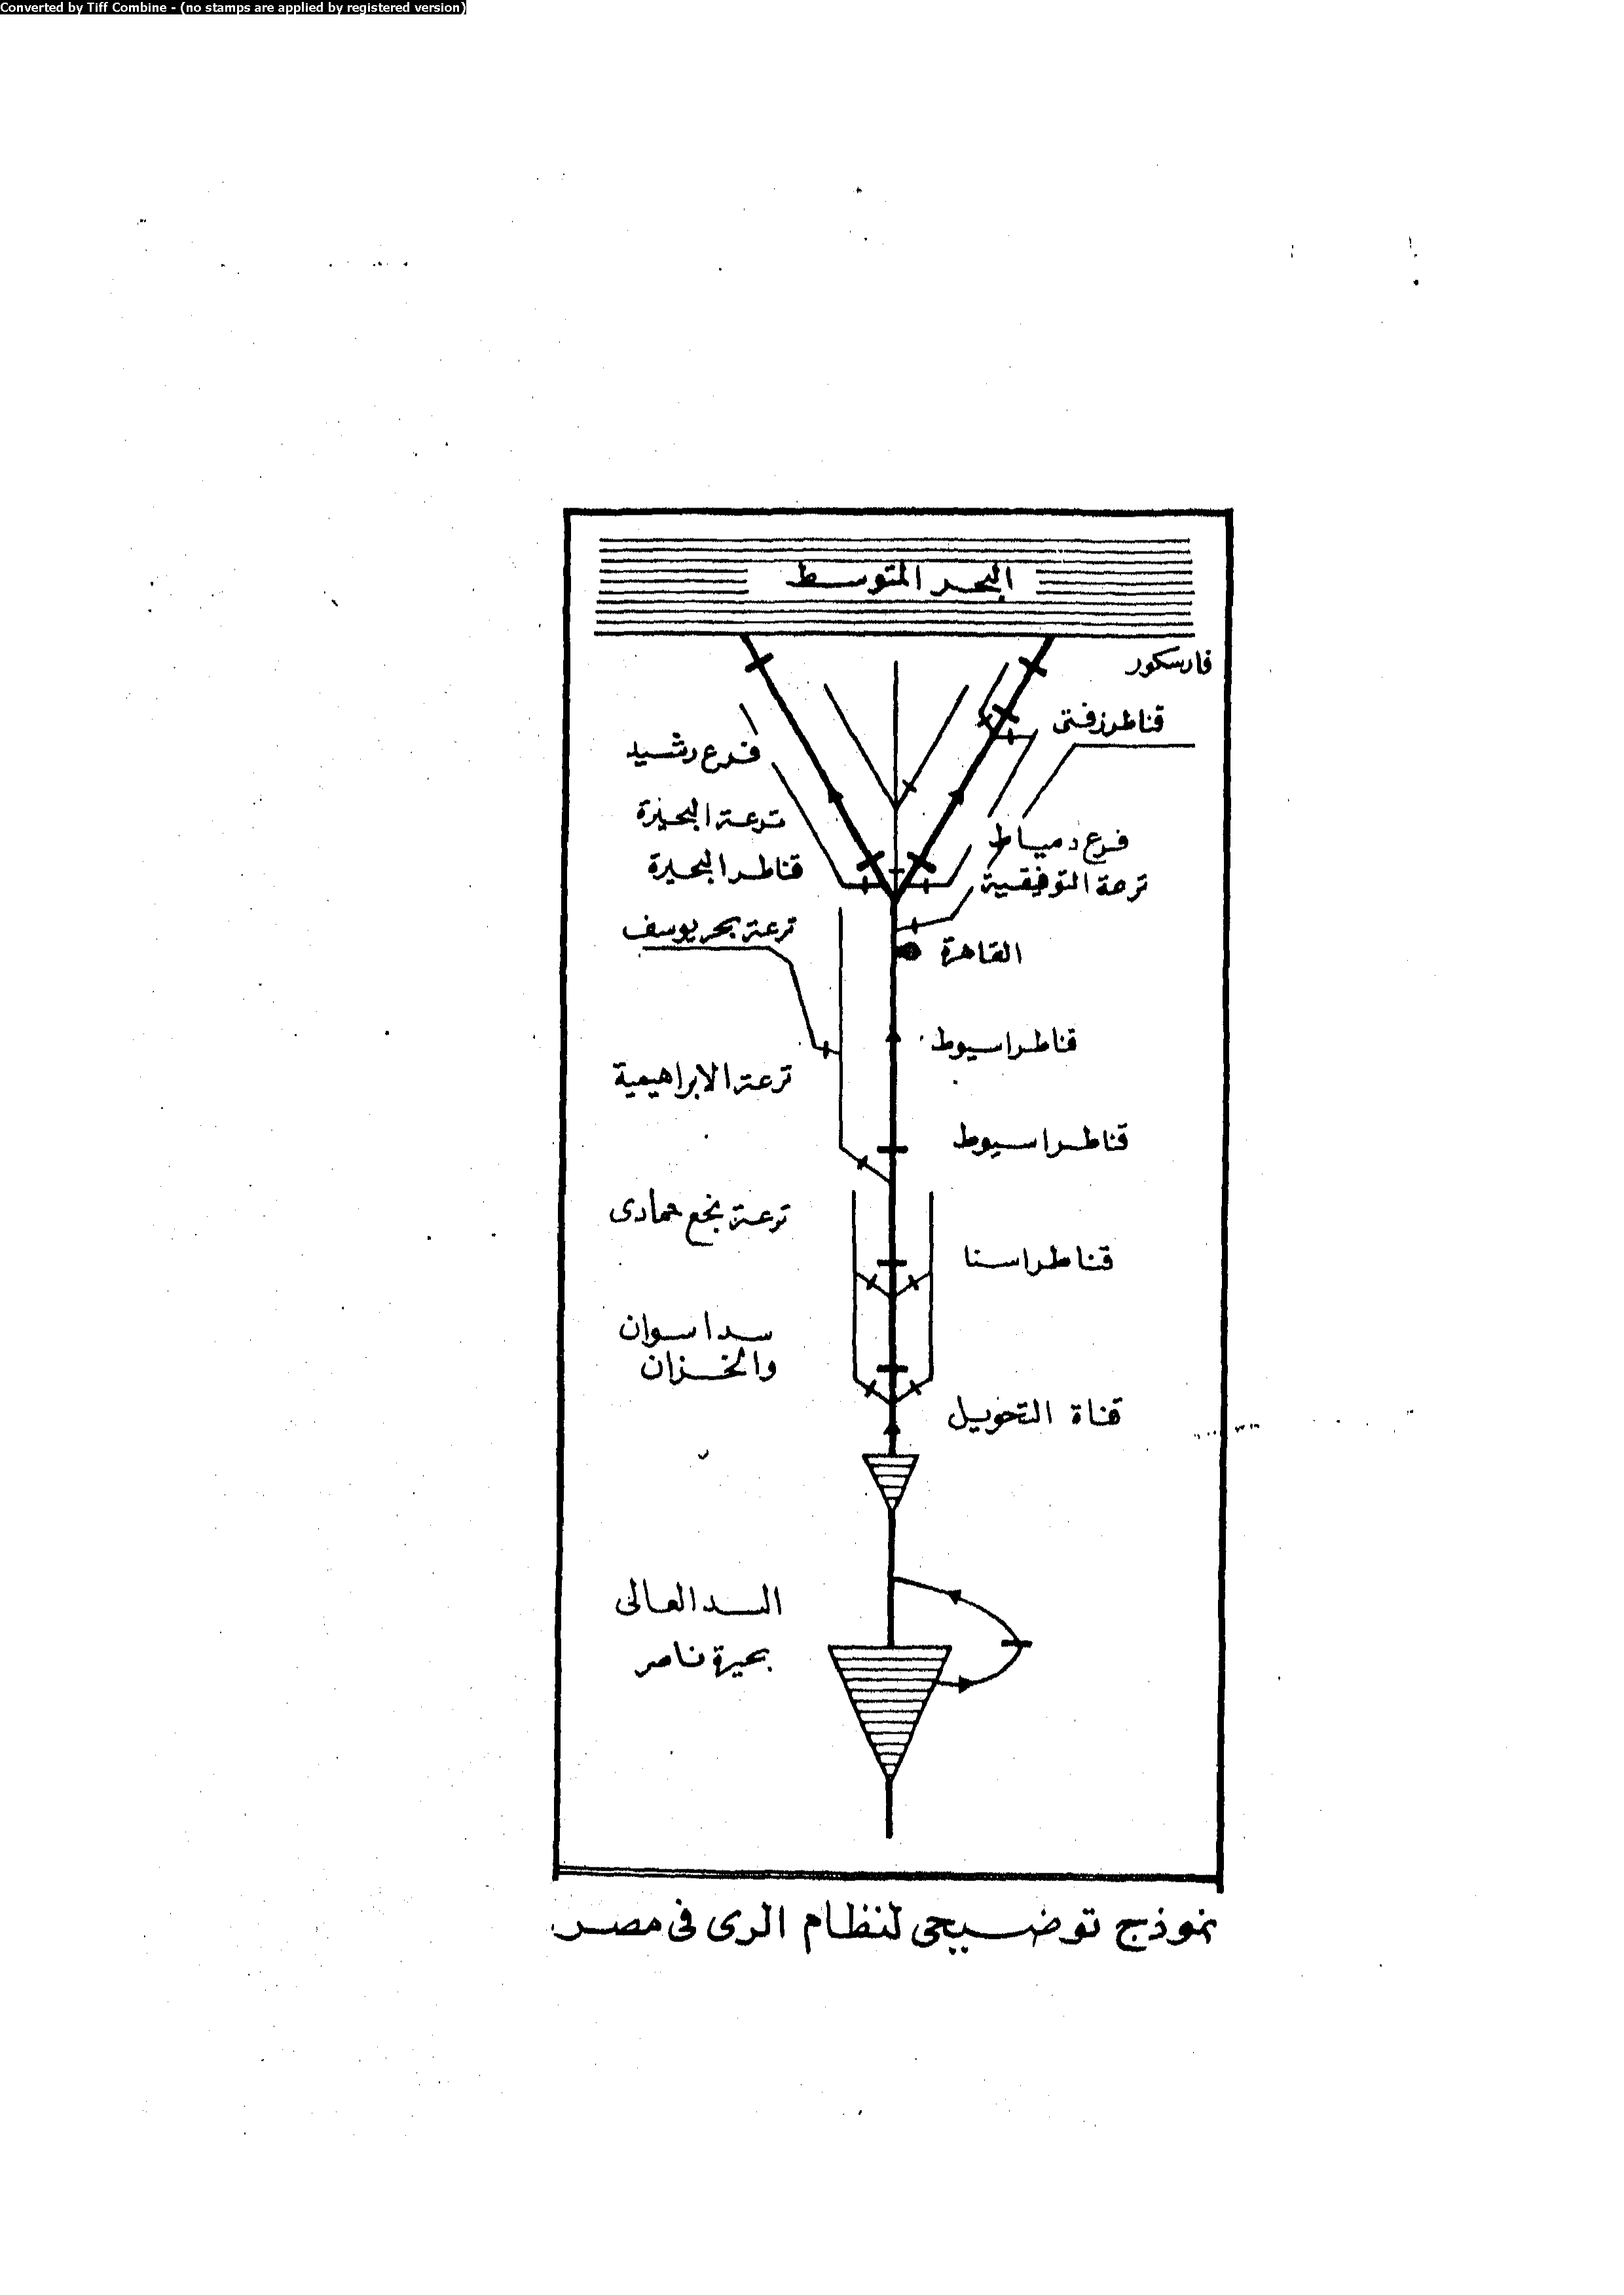 Converted by Tiff Combine - (no stamps are applied by registered version)
البحر المتوسط
فارسكور
قناطر زفتى
فرع رشيد
ترعة البحيرة
فرع دمياط
قناطر البحيرة
ترعة التوفيقية
ترعة بحر يوسف
القاهرة
قناطر اسيوط
ترعة الابراهيمية
قناطر اسيوط
ترعة نجع حمادى
قناطر اسنا
سد اسوان
والخزان
قناة التحويل
السد العالى
بحيرة ناصر
نموذج توضيحى لنظام الرى فى مصر